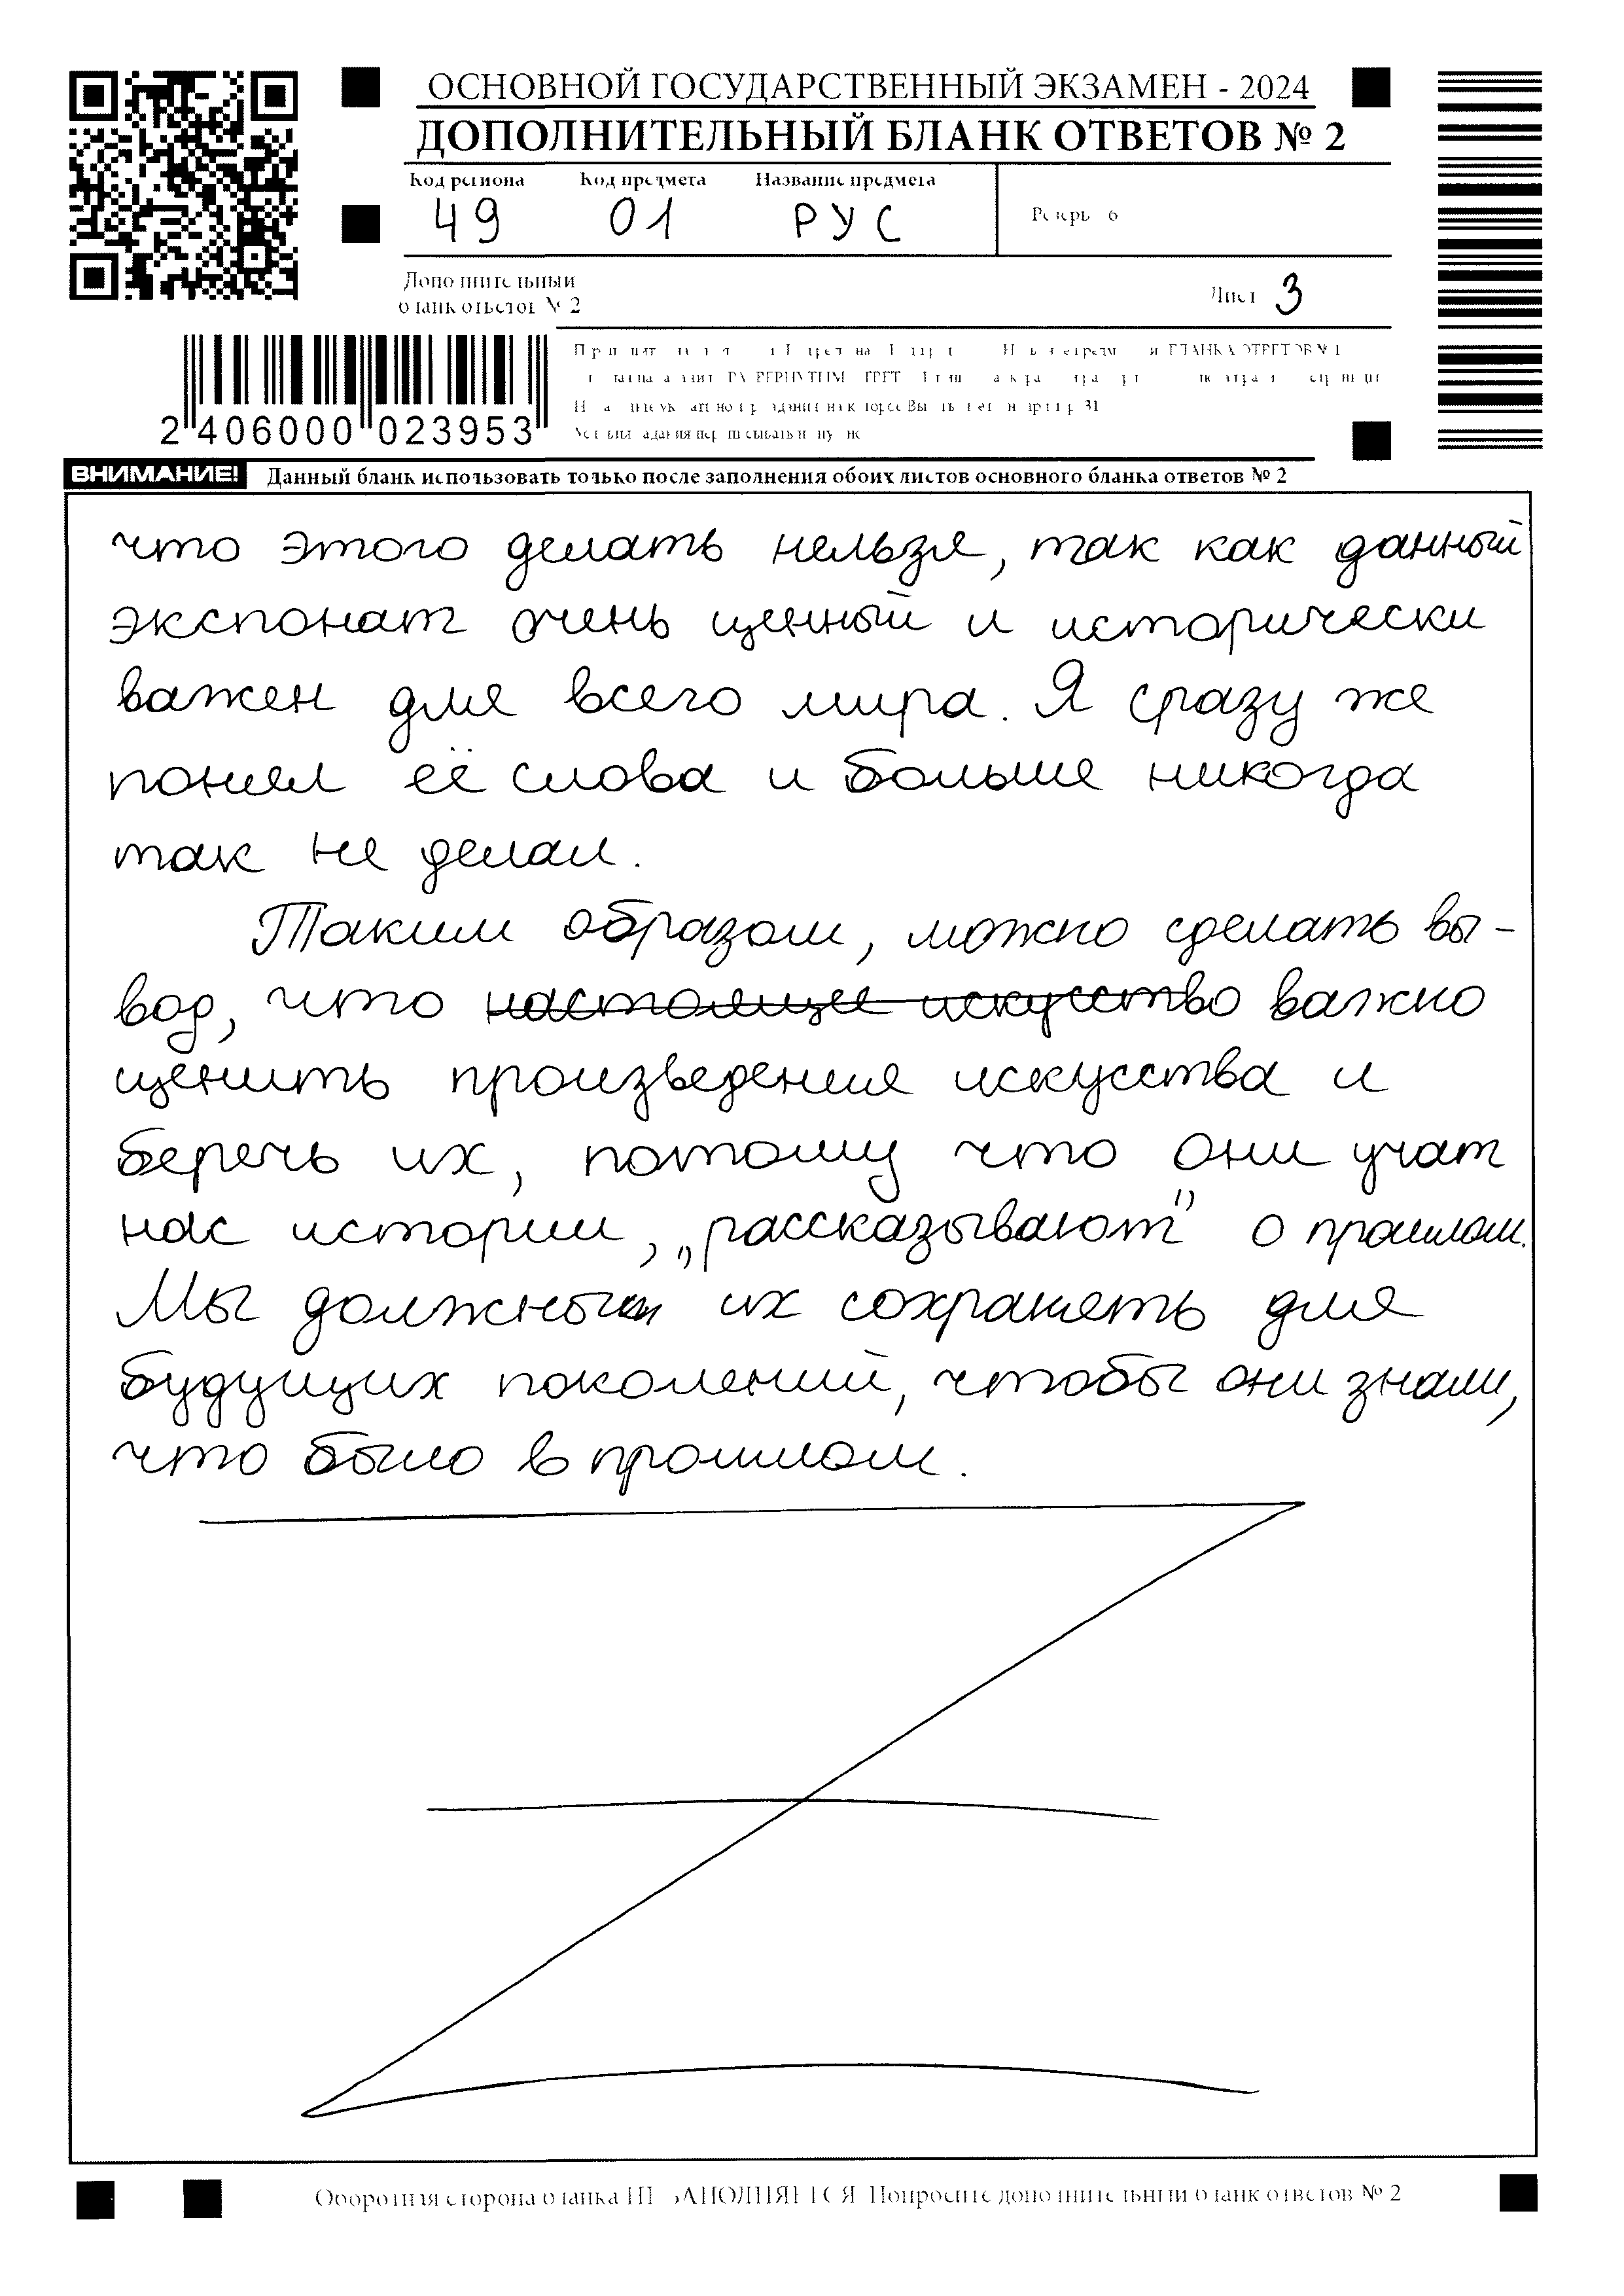 ОСНОВНОЙ ГОСУДАРСТВЕННЫЙ ЭКЗАМЕН - 2024
ДОПОЛНИТЕЛЬНЫЙ БЛАНК ОТВЕТОВ № 2
Код региона Код предмета Название предмета
49 01 РУС
Резерв - 6
Дополнительный
бланк ответов № 2
Лист 3
2 406000 023953
ВНИМАНИЕ! Данный бланк использовать только после заполнения обоих листов основного бланка ответов № 2
что этого делать нельзя, так как данный
экспонат очень ценный и исторически
важен для всего мира. Я сразу же
понял её слова и больше никогда
так не делал.
Таким образом, можно сделать вы-
вод, что настоящее искусство важно
ценить произведения искусства и
беречь их, потому что они учат
нас истории, „рассказывают" о прошлом.
Мы должны их сохранять для
будущих поколений, чтобы они знали,
что было в прошлом.
Оборотная сторона бланка НЕ ЗАПОЛНЯЕТСЯ Попросите дополнительный бланк ответов № 2